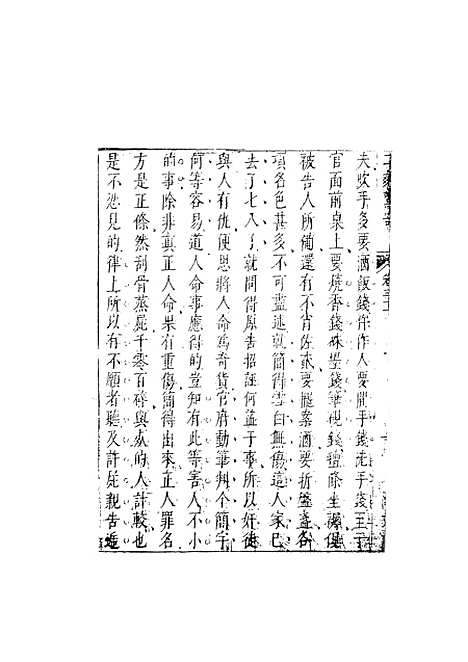 二刻驚奇 卷三十一
夫吹手多要酒飯錢仵作人要開手錢洗手錢至于
官面前桌上要燒香錢硃墨錢筆硯錢氊條坐褥俱
被告人所備還有不肯佐貳要擺案酒要折盤盞各
項名色甚多不可盡述就簡得雪白無傷這人家已
去了七八了就問得原告招誣何益于事所以奸徒
與人有仇便思將人命爲奇貨官府動筆判个簡字
何等容易道人命事應得的豈知有此等害人不小
的事除非真正人命果有重傷簡得出來正人罪名
方是正條然刮骨蒸屍千零百碎與死的人計較也
是不忍見的律上所以有不願者聽及許屍親告遞